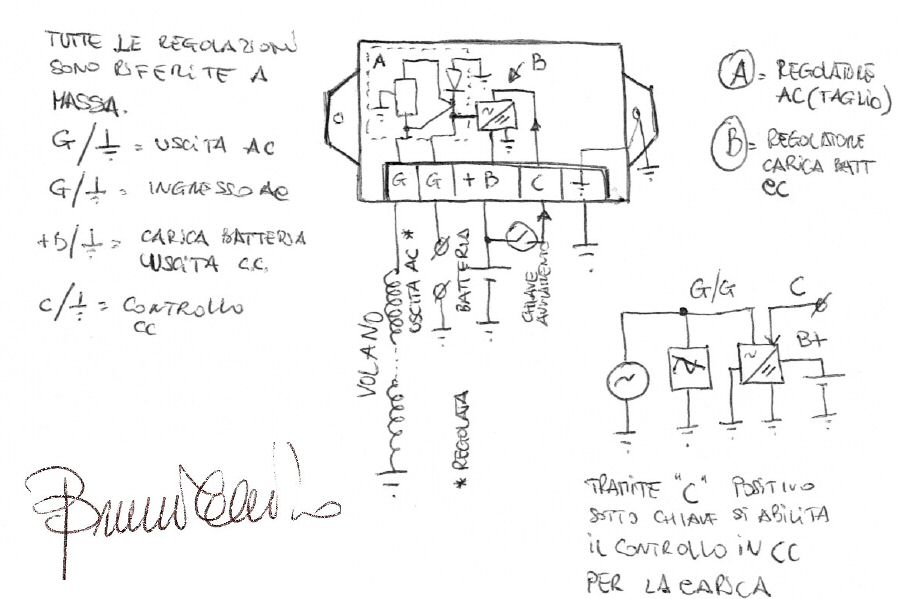 TUTTE LE REGOLAZIONI
SONO RIFERITE A
MASSA.
G/⏚ = USCITA AC
G/⏚ = INGRESSO AC
+B/⏚ = CARICA BATTERIA
USCITA C.C.
C/⏚ = CONTROLLO
CC
A
B
G G +B C ⏚
VOLANO
USCITA AC *
BATTERIA
CHIAVE
AVVIAMENTO
* REGOLATA
A = REGOLATORE
AC (TAGLIO)
B = REGOLATORE
CARICA BATT
CC
G/G
C
B+
TRAMITE "C" POSITIVO
SOTTO CHIAVE SI ABILITA
IL CONTROLLO IN CC
PER LA CARICA